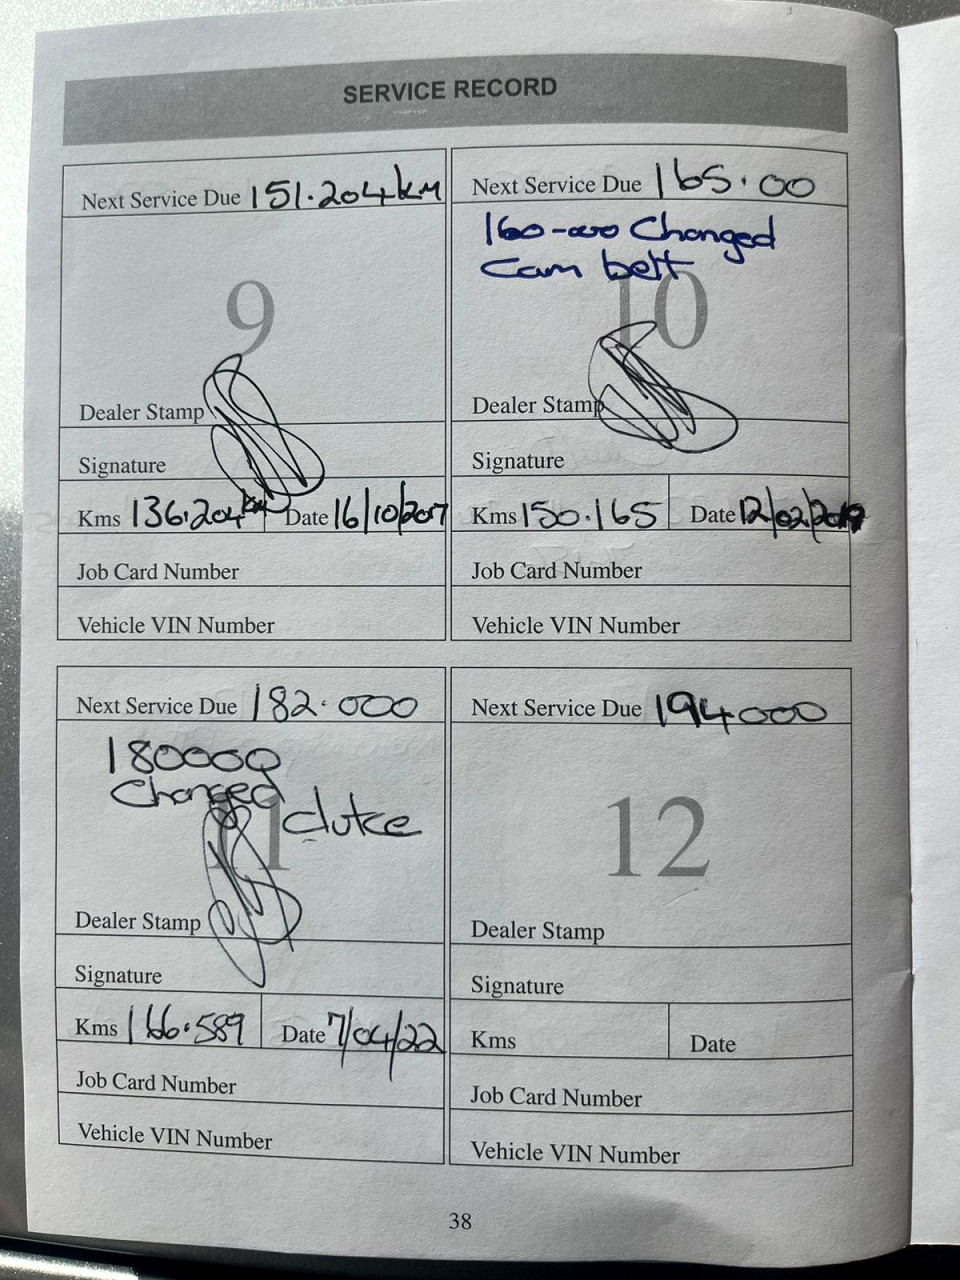 SERVICE RECORD
Next Service Due 151.204km
9
Dealer Stamp
Signature
Kms 136.204km Date 16/10/2017
Job Card Number
Vehicle VIN Number
Next Service Due 165.00
160-000 Changed
Cam belt
10
Dealer Stamp
Signature
Kms 150.165 Date 12/02/2019
Job Card Number
Vehicle VIN Number
Next Service Due 182.000
180000
Changed
clutce
11
Dealer Stamp
Signature
Kms 166.589 Date 7/04/22
Job Card Number
Vehicle VIN Number
Next Service Due 194000
12
Dealer Stamp
Signature
Kms Date
Job Card Number
Vehicle VIN Number
38